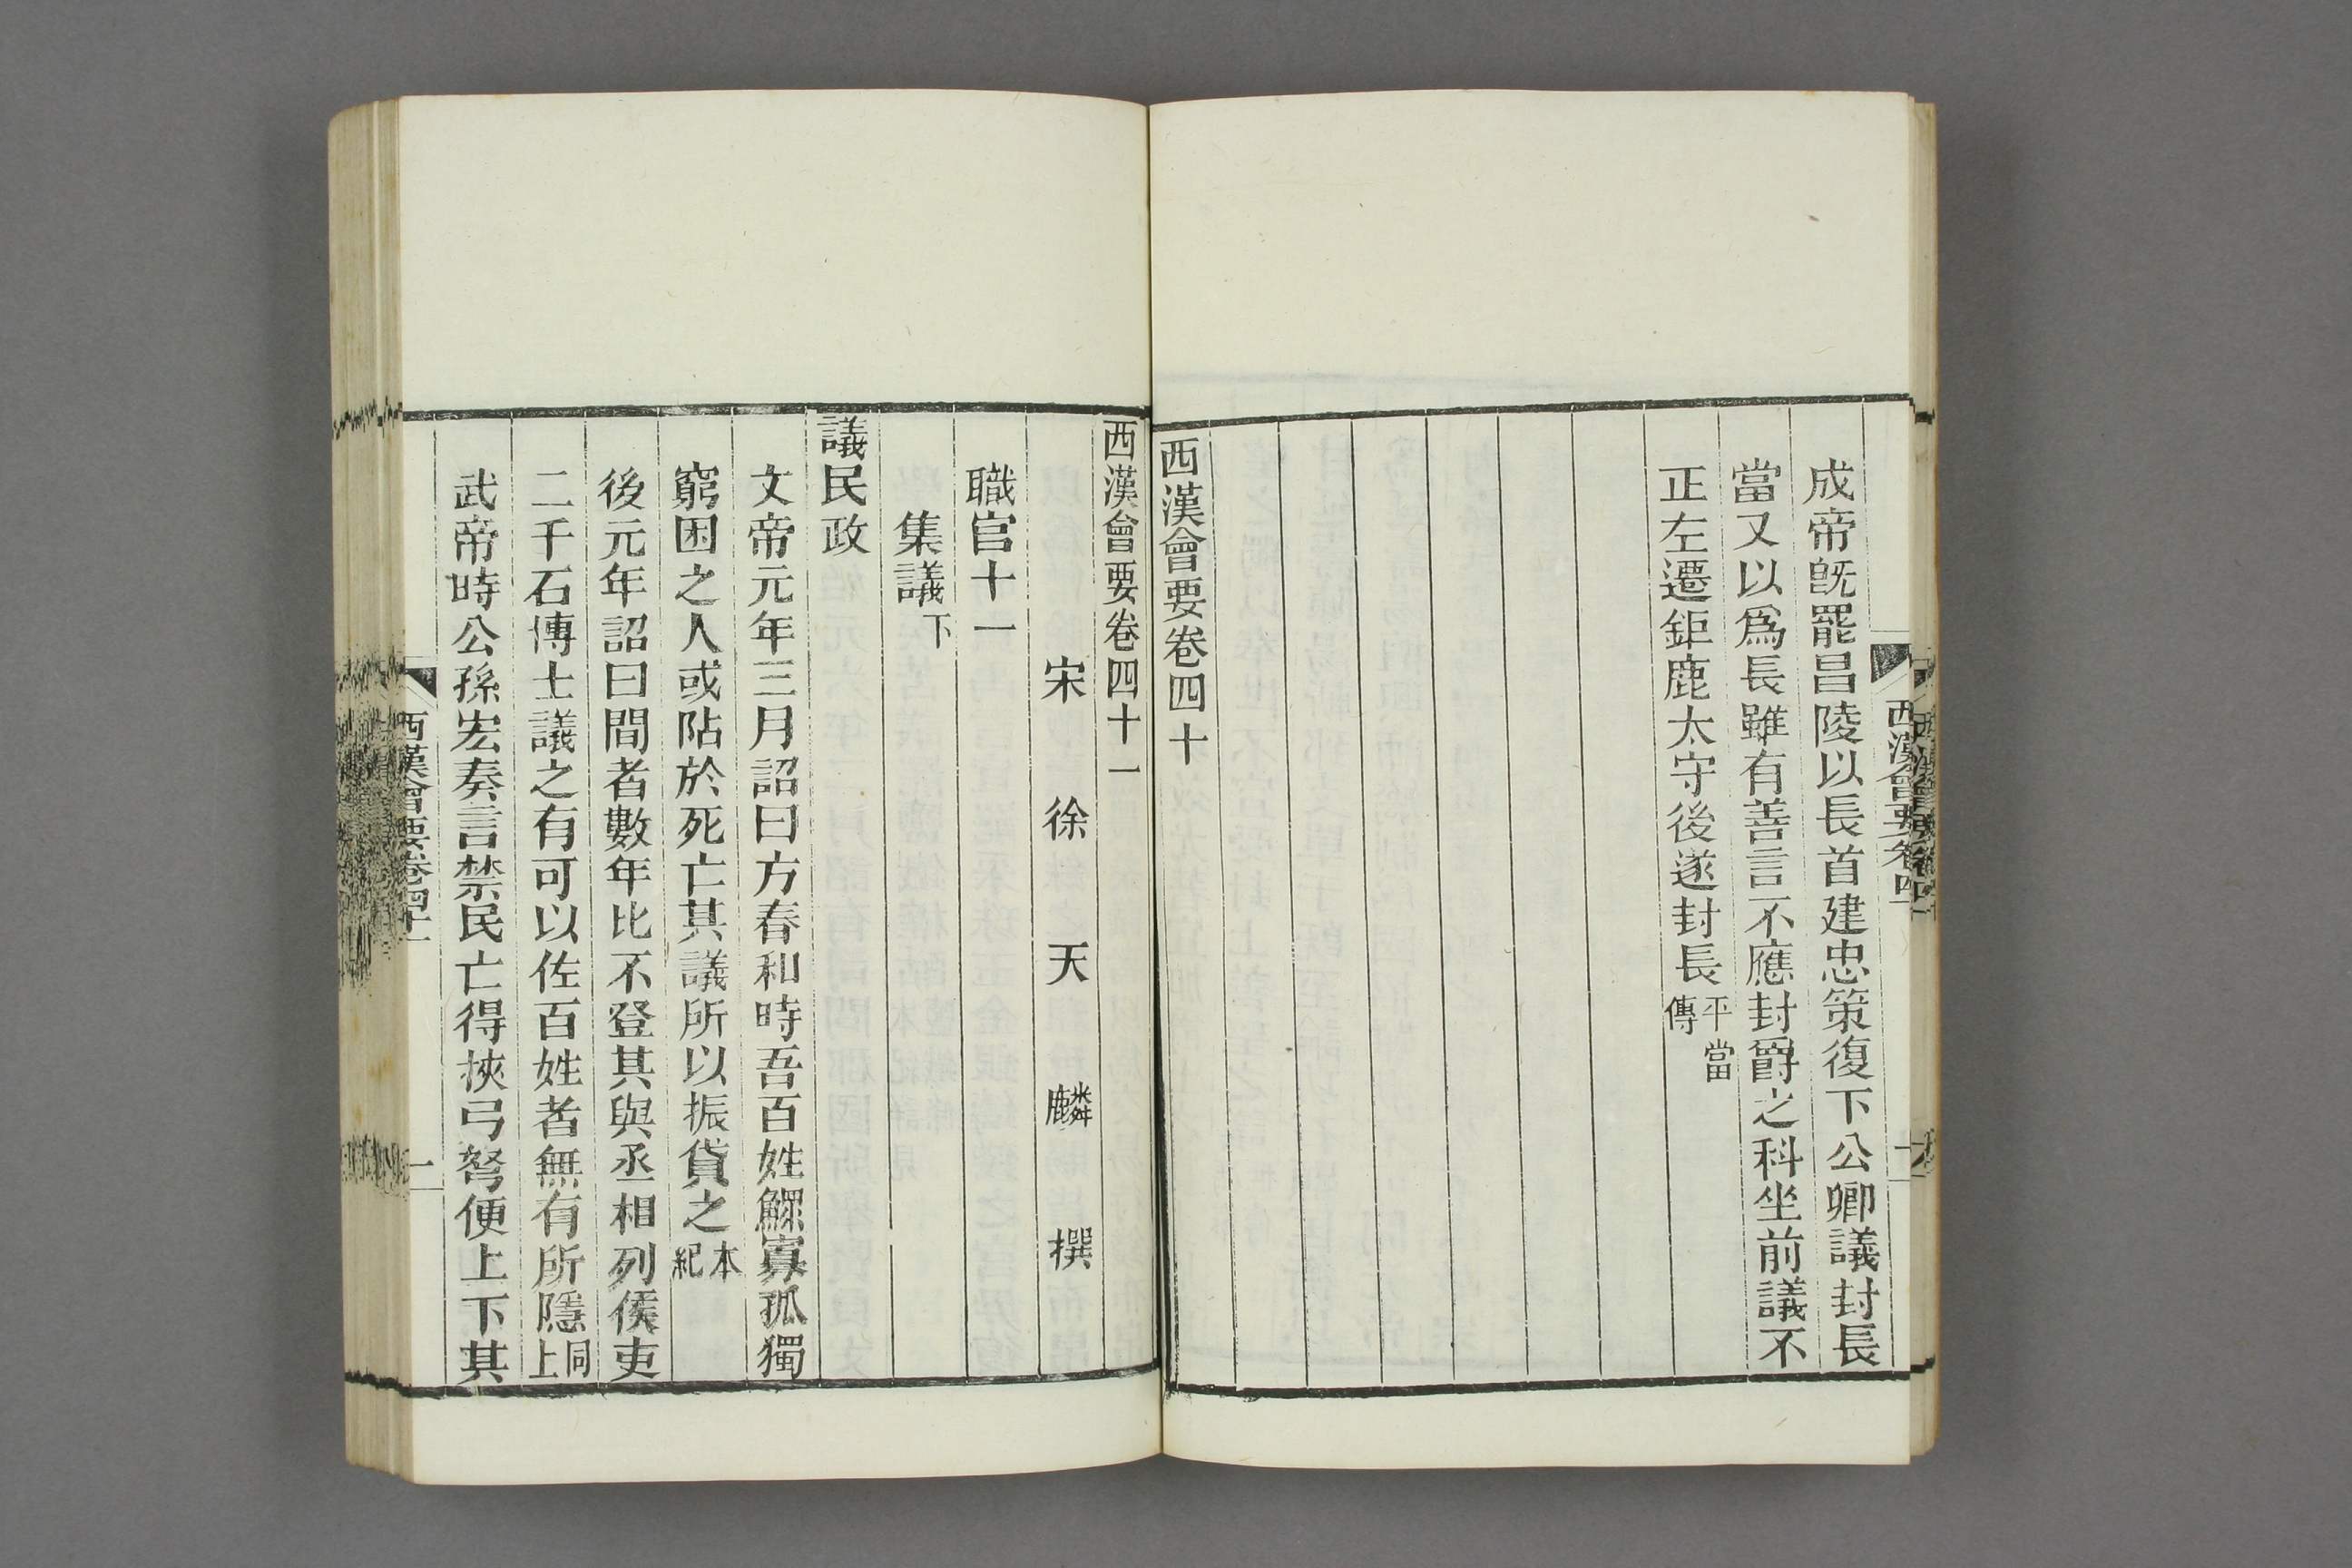 成帝旣罷昌陵以長首建忠策復下公卿議封長
當又以爲長雖有善言不應封爵之科坐前議不
正左遷鉅鹿太守後遂封長平當傳
西漢會要卷四十
西漢會要卷四十一
宋徐天麟撰
職官十一
集議下
議民政
文帝元年三月詔曰方春和時吾百姓鰥寡孤獨
窮困之人或阽於死亡其議所以振貸之本紀
後元年詔曰間者數年比不登其與丞相列侯吏
二千石博士議之有可以佐百姓者無有所隱同上
武帝時公孫宏奏言禁民亡得挾弓弩便上下其
西漢會要卷四十一
一